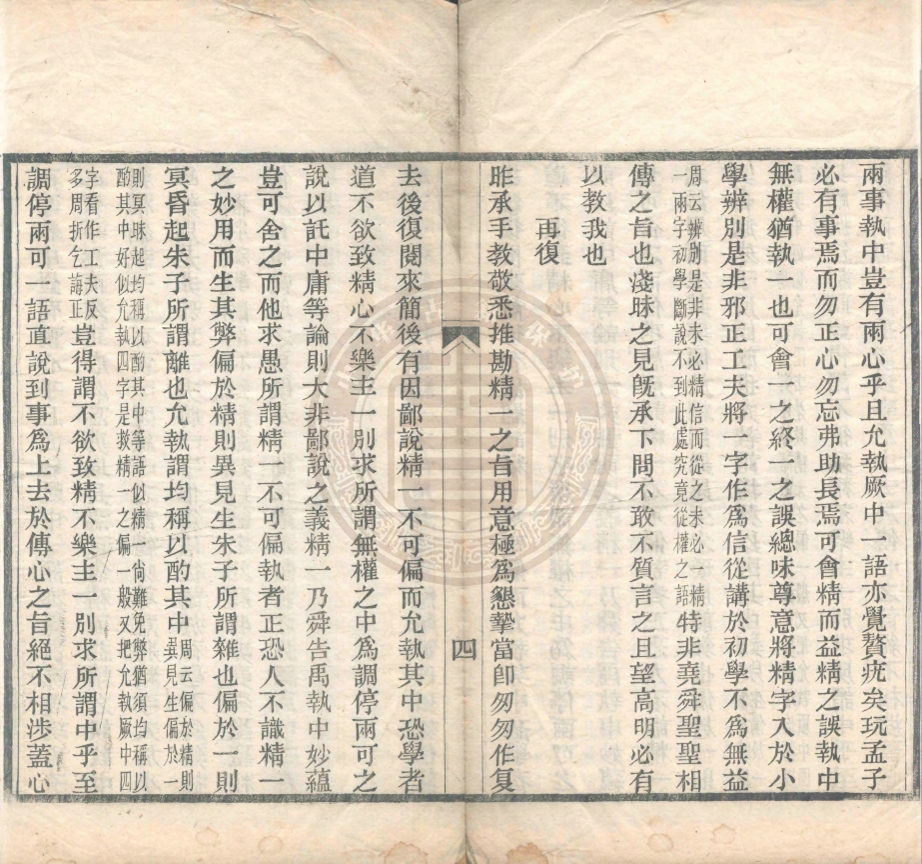 兩事執中豈有兩心乎且允執厥中一語亦覺贅疣矣玩孟子
必有事焉而勿正心勿忘弗助長焉可會精而益精之誤執中
無權猶執一也可會一之終一之誤總味尊意將精字入於小
學辨別是非邪正工夫將一字作爲信從講於初學不爲無益
周云辨別是非未必精信而從之未必一精
一兩字初學斷說不到此處究竟從權之語
特非堯舜聖聖相
傳之旨也淺昧之見旣承下問不敢不質言之且望高明必有
以教我也
再復
昨承手教敬悉推勘精一之旨用意極爲懇摯當卽匆匆作复
四
去後復閱來簡後有因鄙說精一不可偏而允執其中恐學者
道不欲致精心不樂主一別求所謂無權之中爲調停兩可之
說以託中庸等論則大非鄙說之義精一乃舜告禹執中妙蘊
豈可舍之而他求愚所謂精一不可偏執者正恐人不識精一
之妙用而生其弊偏於精則異見生朱子所謂雜也偏於一則
冥昏起朱子所謂離也允執謂均稱以酌其中
周云偏於精則
異見生偏於一
則冥昧起均稱以酌其中等語似精一尙難免弊猶須均稱以
酌其中好似允執四字是救精一之偏一般又把允執厥中四
字看作工夫反
多周折乞講正
豈得謂不欲致精不樂主一別求所謂中乎至
調停兩可一語直說到事爲上去於傳心之旨絕不相涉蓋心